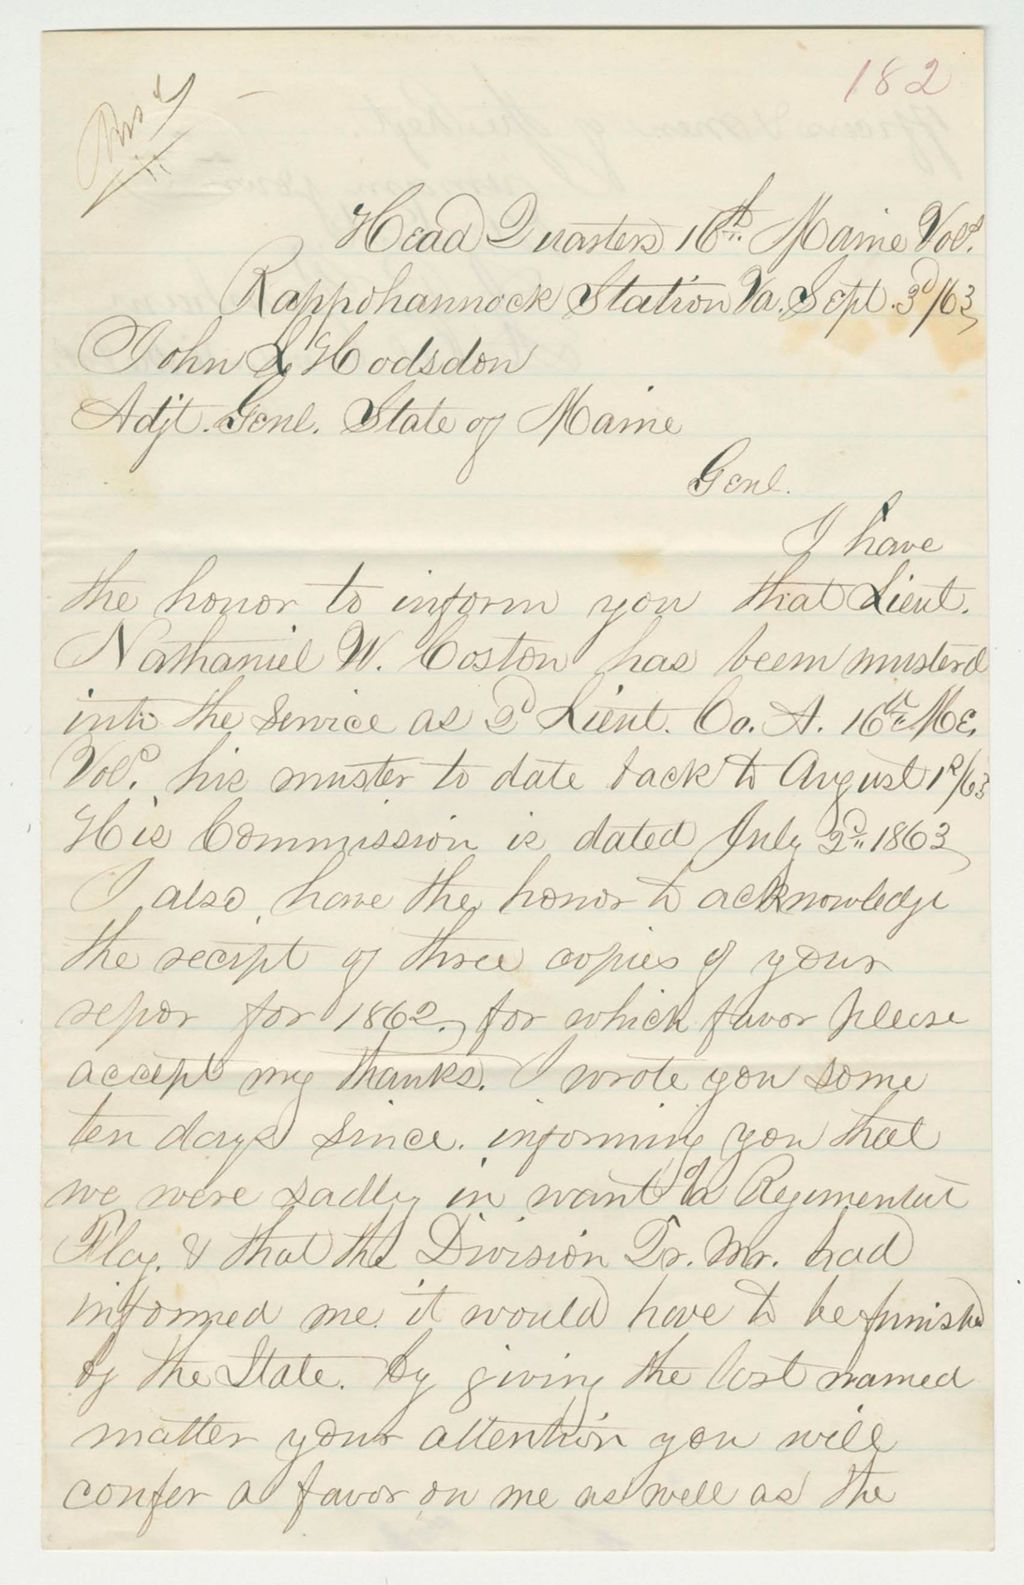 182
Head Quarters 16th. Maine Vols.
Rappohannock Station Va. Sept. 3d/63,
John L Hodsdon
Adjt. Genl. State of Maine
Genl.
I have
the honor to inform you that Lieut.
Nathaniel W. Coston has been musterd
into the service as 2d Lieut. Co. A. 16th Me,
Vols. his muster to date back to August 1st/63
His Commission is dated July 2d. 1863,
I also, have the honor to acknowledge
the recipt of three copies of your
repor for 1862, for which favor please
accept my thanks. I wrote you some
ten days since. informing you that
we were sadly in want of a Regimental
Flag. & that the Division Qr. Mr. had
informed me it would have to be furnished
by the State. By giving the last named
matter your attention you will
confer a favor on me as well as the